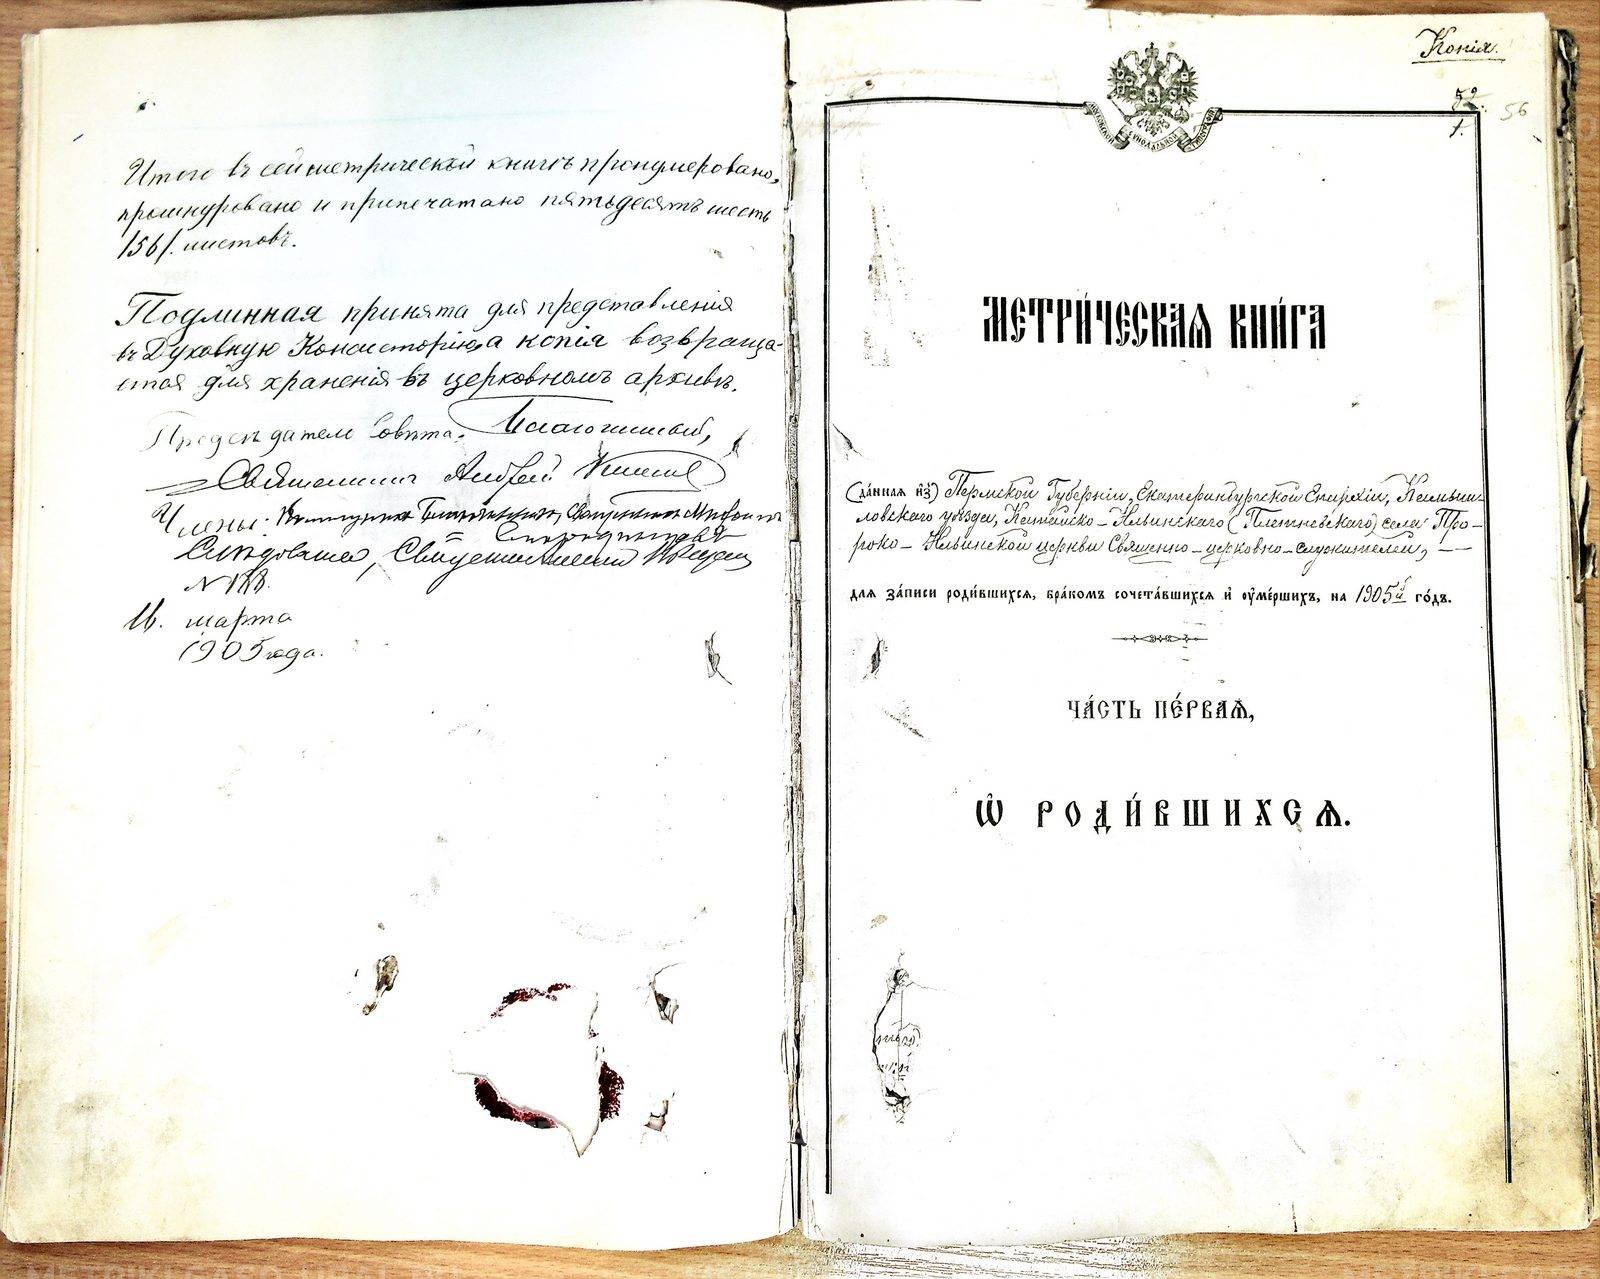 Итого въ сей метрической книгѣ пронумеровано,
прошнуровано и припечатано пятьдесятъ шесть
/56/. листовъ.
Подлинная принята для представленія
въ Духовную Консисторію, а копія возвраща-
ется для храненія въ церковномъ архивѣ.
Предсѣдатель Совѣта: Благочинный,
Священникъ Андрей
Члены:
Священникъ
№ 188.
16. марта
1905 года.
Копія.
52
1.
56
МОСКОВСКОЙ СѴНОДАЛЬНОЙ ТИПОГРАФІИ
МЕТРИ́ЧЕСКАѦ КНИ́ГА
(да́ннаѧ и҆з̾) Пермской Губерніи, Екатеринбургской Епархіи, Камыш-
ловскаго уѣзда, Катайско-Ильинскаго (Плетневскаго) села Про-
роко-Ильинской церкви Священно-церковно-служителей,
для за́писи роди́вшихсѧ, бра́комъ сочета́вшихсѧ и҆ ᲂу҆ме́ршихъ, на 1905й го́дъ.
ЧА́СТЬ ПЕ́РВАѦ,
Ѡ҆ РОДИ́ВШИХСѦ.